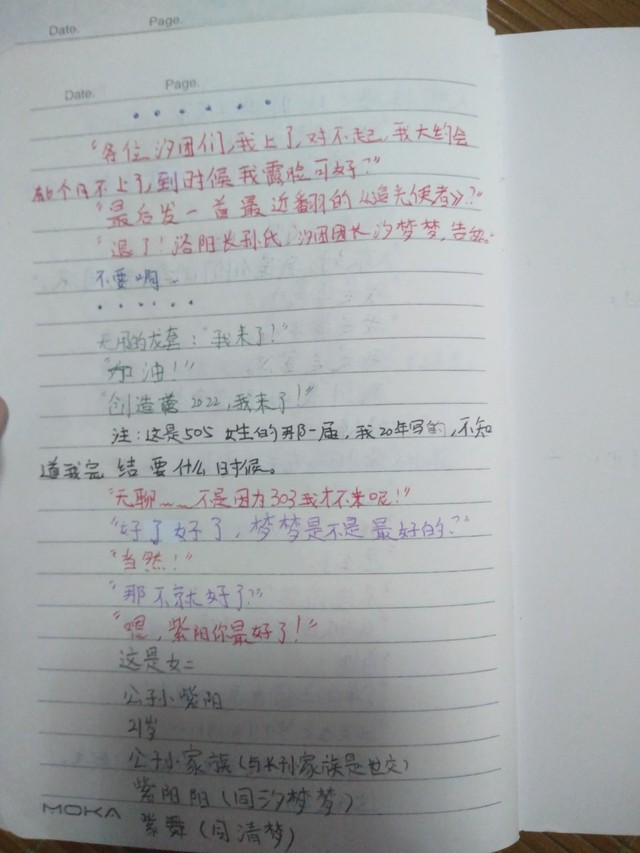 Date. Page.
Date. Page.
• • • • • •
"各位汐团们,我上了,对不起,我大约会
有6个月不上了,到时候我露脸可好?"
"最后发一首最近翻的《追光使者》?"
"退了!洛阳长孙氏,汐团团长汐梦梦,告辞。"
不要啊~
• • • • • •
无用的龙套:"我来了!"
"加油!"
"创造营2022,我来了!"
注:这是505女生的那一届,我20年写的,不知
道我完结要什么时候。
"无聊~~不是因为303我才不来呢!"
"好了好了,梦梦是不是最好的?"
"当然!"
"那不就好了?"
"嗯,紫阳你最好了!"
这是女二
公孙紫阳
21岁
公孙家族(与长孙家族是世交)
紫阳阳(同汐梦梦)
紫舞(同清梦)
MOKA